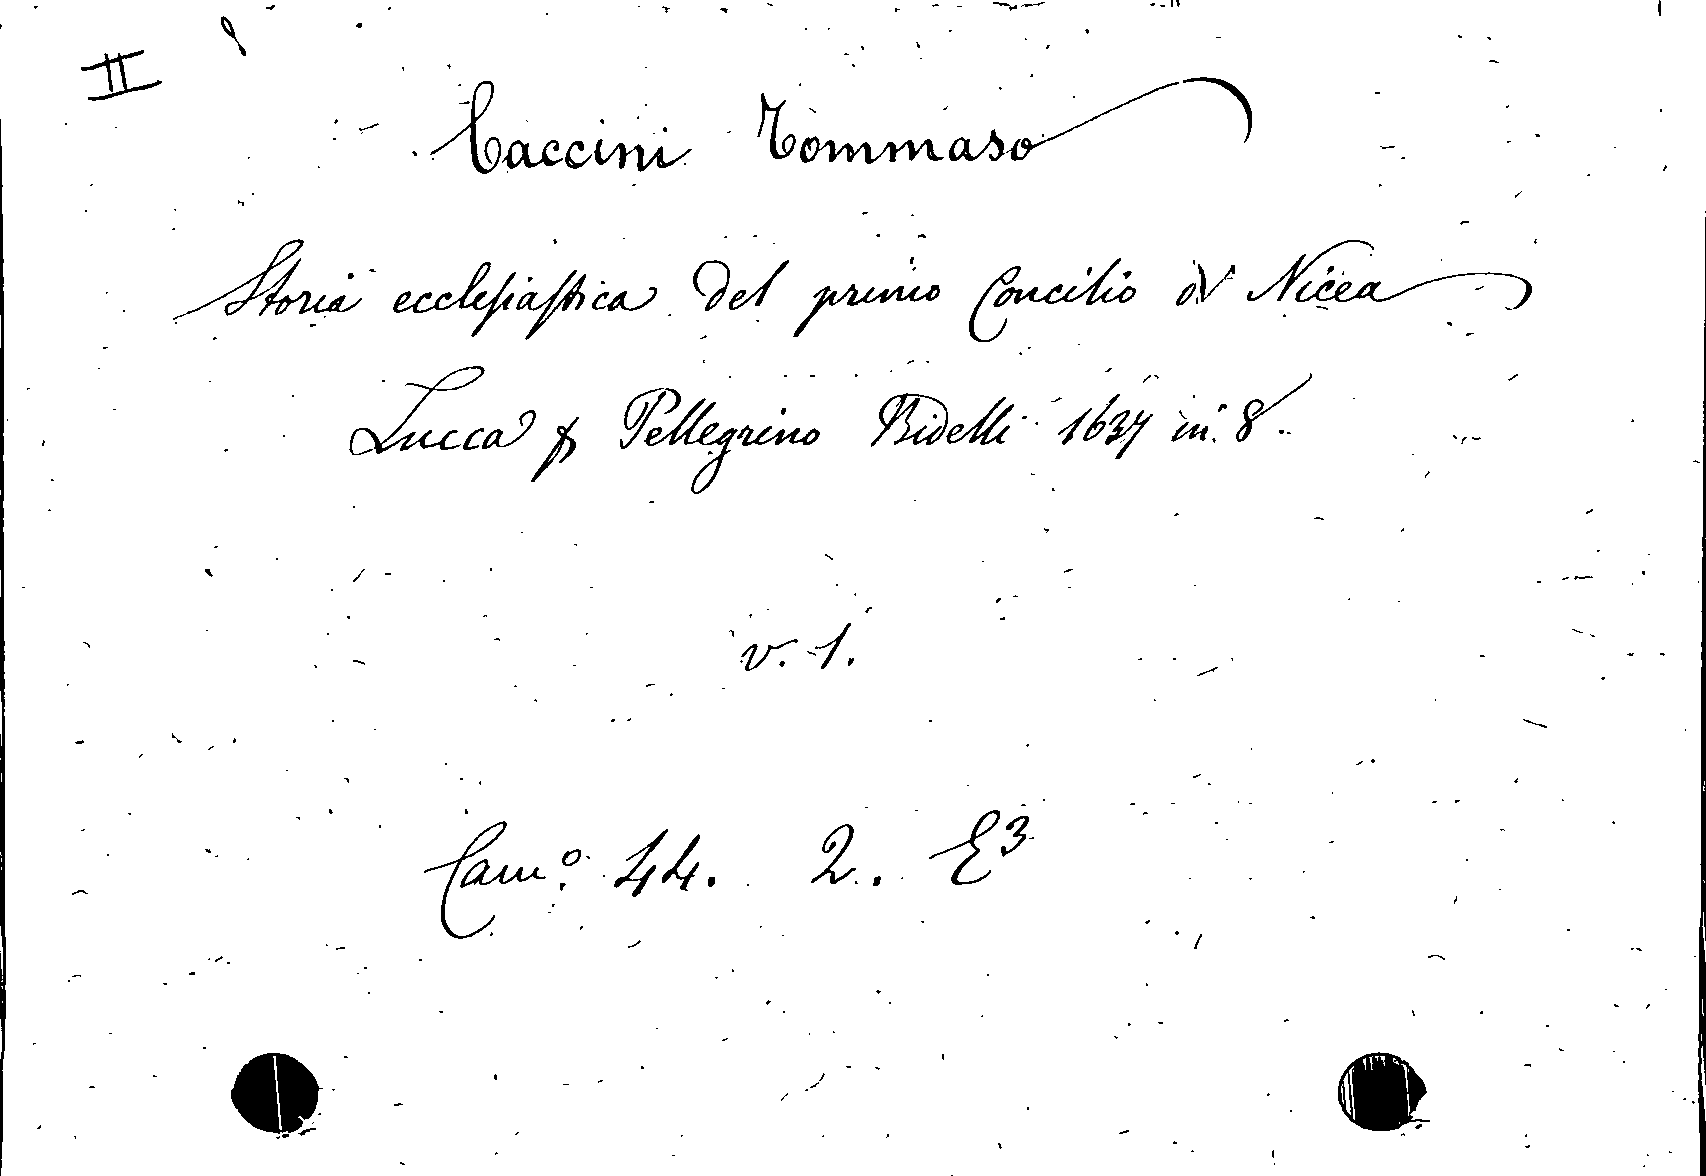 II
Caccini Tommaso
Storia ecclesiastica del primo Concilio di Nicea
Lucca p Pellegrino Bidelli 1637 in 8.
v. 1.
Cam.º 44. 2. E³